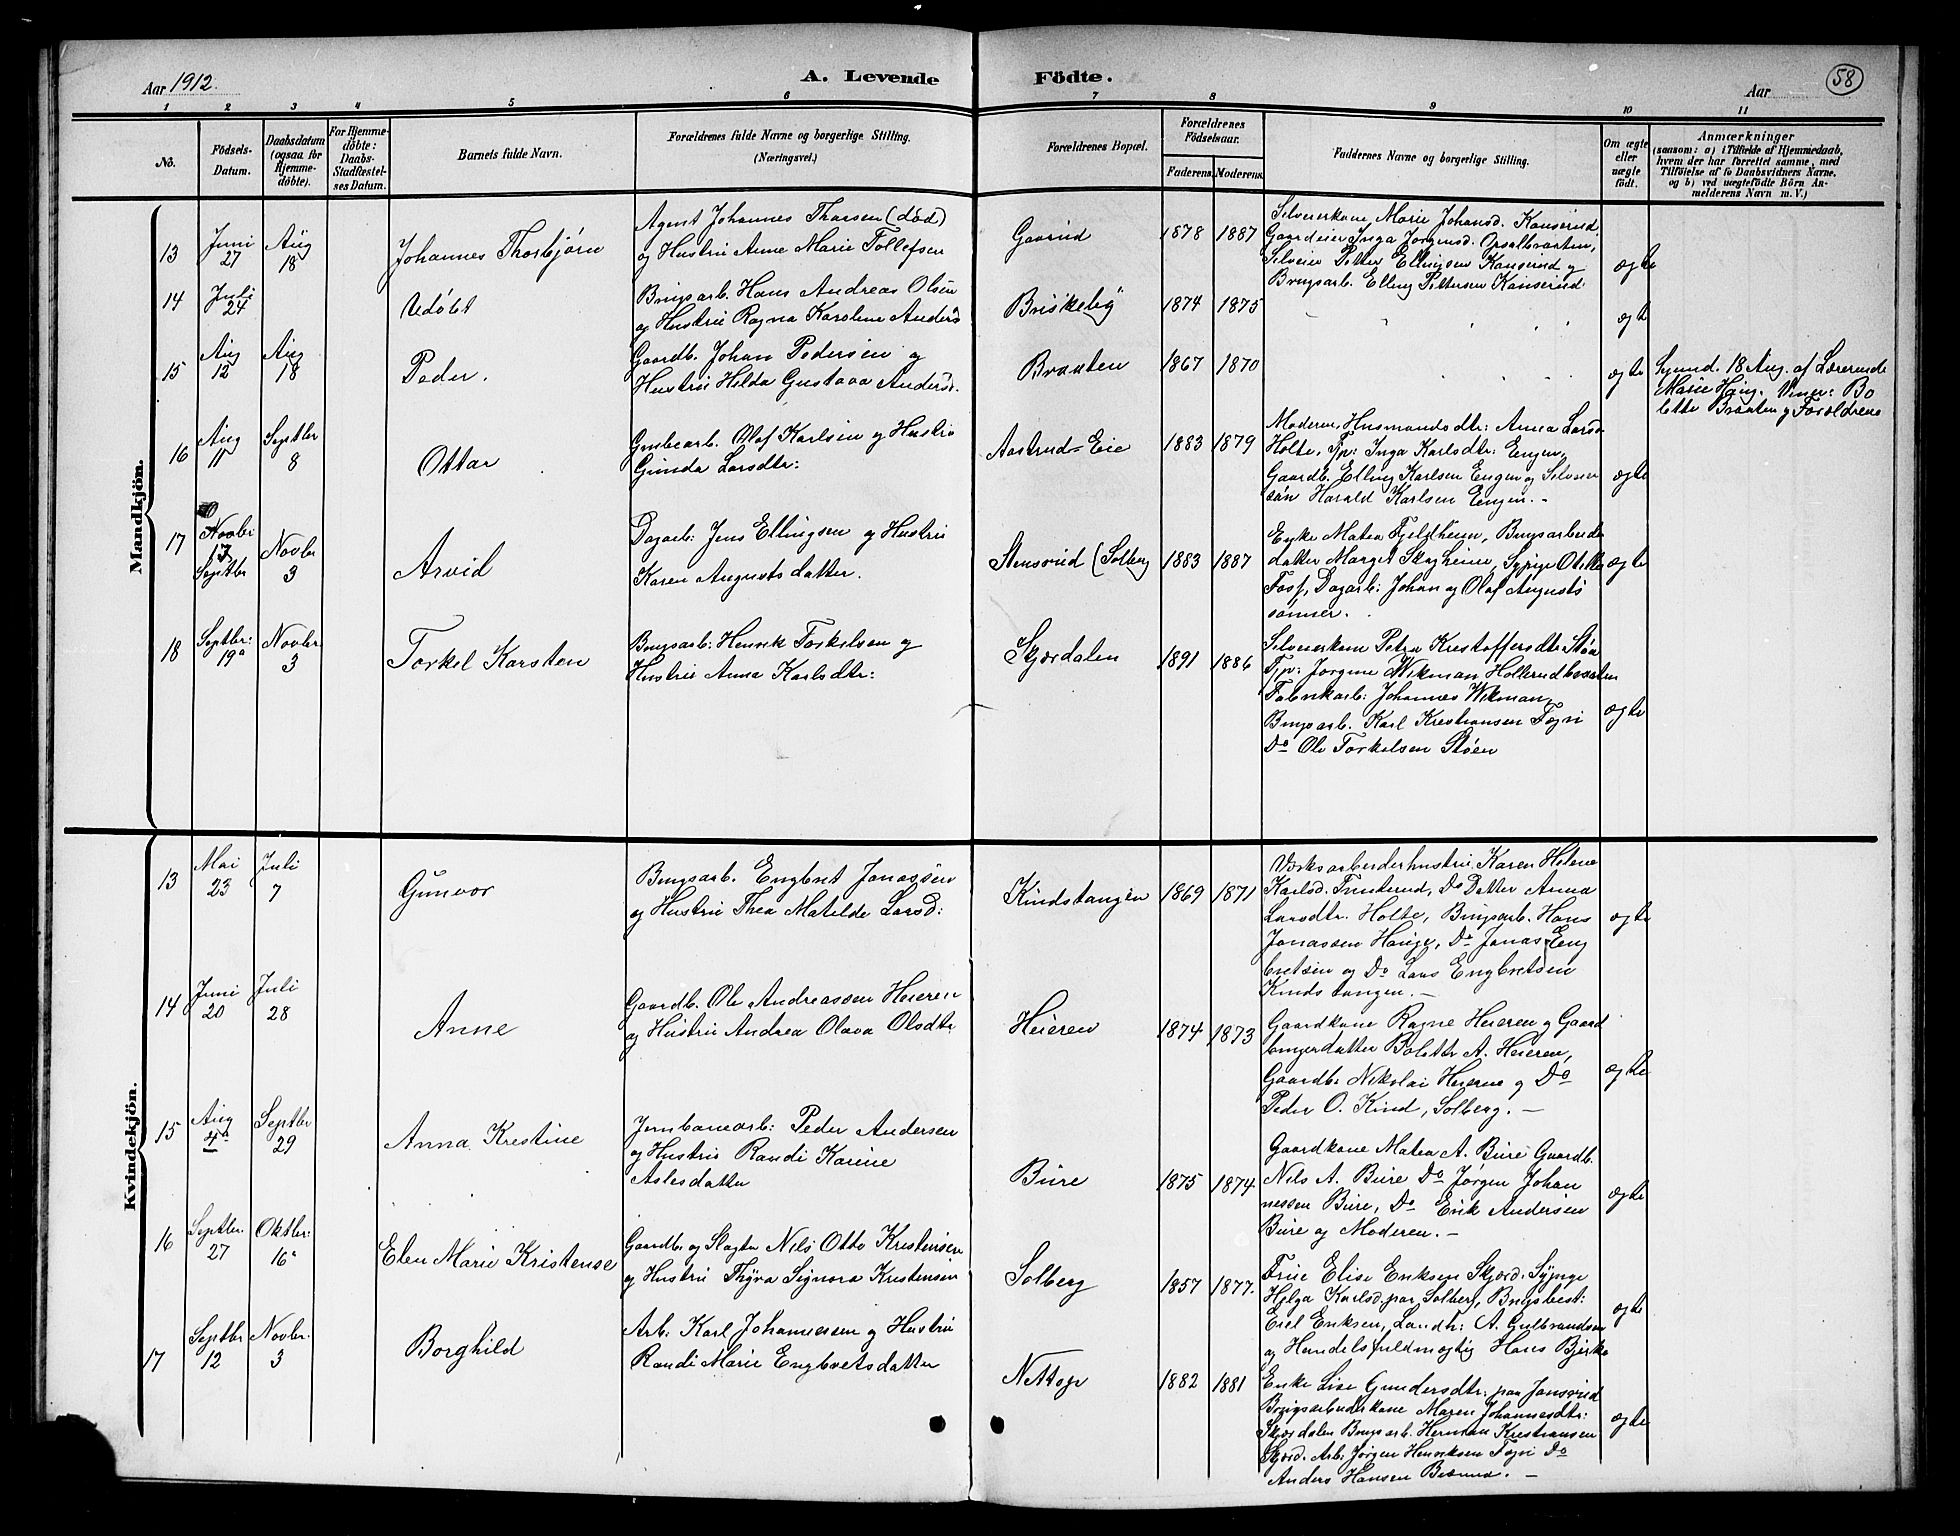 Aar 1912.
A. Levende
Födte.
Aar
58
1 2 3 4 5 6 7 8 9 10 11
No.
Födsels-
Datum.
Daabsdatum
(ogsaa for
Hjemme-
döbte).
For Hjemme-
döbte:
Daabs-
Stadfæstel-
ses Datum.
Barnets fulde Navn.
Forældrenes fulde Navne og borgerlige Stilling.
(Næringsvei.)
Forældrenes Bopæl.
Forældrenes
Födselsaar.
Faderens. Moderens.
Faddernes Navne og borgerlige Stilling.
Om ægte
eller
uægte
födt.
Anmærkninger
(saasom: a) i Tilfælde af Hjemmedaab,
hvem der har forrettet samme, med
Tilföielse af to Daabsvidners Navne,
og b) ved uægtefödte Börn An-
melderens Navn m. V.)
Mandkjön.
13
Juni
27
Aug
18
Johannes Thorbjørn
Agent Johannes Thorsen (død)
og Hustru Anne Marie Tollefsen
Gaarud
1878 1887
Selveierkone Marie Johansd. Kanserud,
Gaardeier Inga Jørgensd. Opsalbraaten,
Selveier Petter Ellingsen Kanserud og
Brugsarb. Elling Pettersen Kanserud.
ægte
14
Juli
24
Udøbt
Brugsarb. Hans Andreas Olsen
og Hustru Ragna Karoline Andersd
Briskeby
1874 1875
ægte
15
Aug
12
Aug
18
Peder.
Gaardb. Johan Pedersen og
Hustru Helda Gustava Andersd.
Braaten
1867 1870
ægte
18 Aug. af Lærerinde
Marie Haug. Bo
lette Braaten og Forældrene
16
Aug
11
Septbr
8
Ottar
Grubearb. Olaf Karlsen og Hustru
Gunda Larsdtr:
Aastrud-Eie
1883 1879
Moderen, Husmandsdtr: Anna Larsd
Holte, Tp: Inga Karlsdtr: Engen,
Gaardb. Elling Karlsen Engen og Selveier
søn Harald Karlsen Engen. -
ægte
17
Novbr
13
Septbr
Novbr
3
Arvid
Dagarb: Jens Ellingsen og Hustru
Karen Augustsdatter.
Stensrud (Solberg
1883 1887
Enke Matea Fjeldheim, Brugsarbeider
datter Margit Skogheim, Sypige Otilie
Foss, Dagarb: Johan og Olaf Augusts
sønner.
ægte
18
Septbr:
19
Novbr
3
Torkel Karsten
Brugsarb: Henrik Torkelsen og
Hustru Anna Karlsdtr:
Skjærdalen
1891 1886
Selveierkone Petra Krestoffersdtr Støa
Tjp: Jørgine Wikman Hollerudbraaten
Fabrikarb: Johannes Wikman,
Brugsarb. Karl Krestiansen Togri
Do Ole Torkelsen Støen
ægte
Kvindekjön.
13
Mai
23
Juli
7
Gunvor
Brugsarb. Engbret Jonassen
og Hustru Thea Matilde Larsd:
Kindstangen
1869 1871
Værksarbeiderhustru Karen Helene
Karlsd. Trinterud, Do Datter Anna
Larsdtr. Holte, Brugsarb. Hans
Jonassen Hauge, Do Jonas Eng
bretsen og Do Lars Engbretsen
Kindstangen. -
ægte
14
Juni
20
Juli
28
Anne
Gaardb. Ole Andreassen Heieren
og Hustru Andrea Olava Olsdtr
Heieren
1874 1873
Gaardkone Ragne Heieren og Gaard
brugerdatter Bolette A. Heieren,
Gaardb. Nikolai Heieren og Do
Peder O. Kind, Solberg. -
ægte
15
Aug
4
Septbr
29
Anna Krestine
Jernbanearb: Peder Andersen
og Hustru Randi Karine
Aslesdatter
Bure
1875 1874
Gaardkone Matea A. Bure Gaardb.
Nils A. Bure Do Jørgen Johan
nessen Bure, Do Erik Andersen
Bure og Moderen. -
ægte
16
Septbr.
27
Oktbr:
16
Elen Marie Kristense
Gaardb. og Slagter Nils Otto Kristensen
og Hustru Thyra Signora Kristensen
Solberg
1857 1877.
Frue Elise Eriksen Skjærd. Sypige
Helga Karlsd. paa Solberg, Brugsbest:
Eriksen, Landh: A. Gulbrandsen
og Handelsfuldmægtig Hans Bjerke
ægte
17
Septbr
12
Novbr.
3
Borghild
Arb: Karl Johannessen og Hustru
Randi Marie Engbretsdatter
1882 1881
Enke Lise Gundersdtr: paa Jonsrud
Brugsarbeiderkone Maren Johannesdtr:
Skjærdalen Brugsarb. Herman Krestiansen
Skjærd. Arb: Jørgen Henriksen Togri Do
Anders Hansen -
ægte